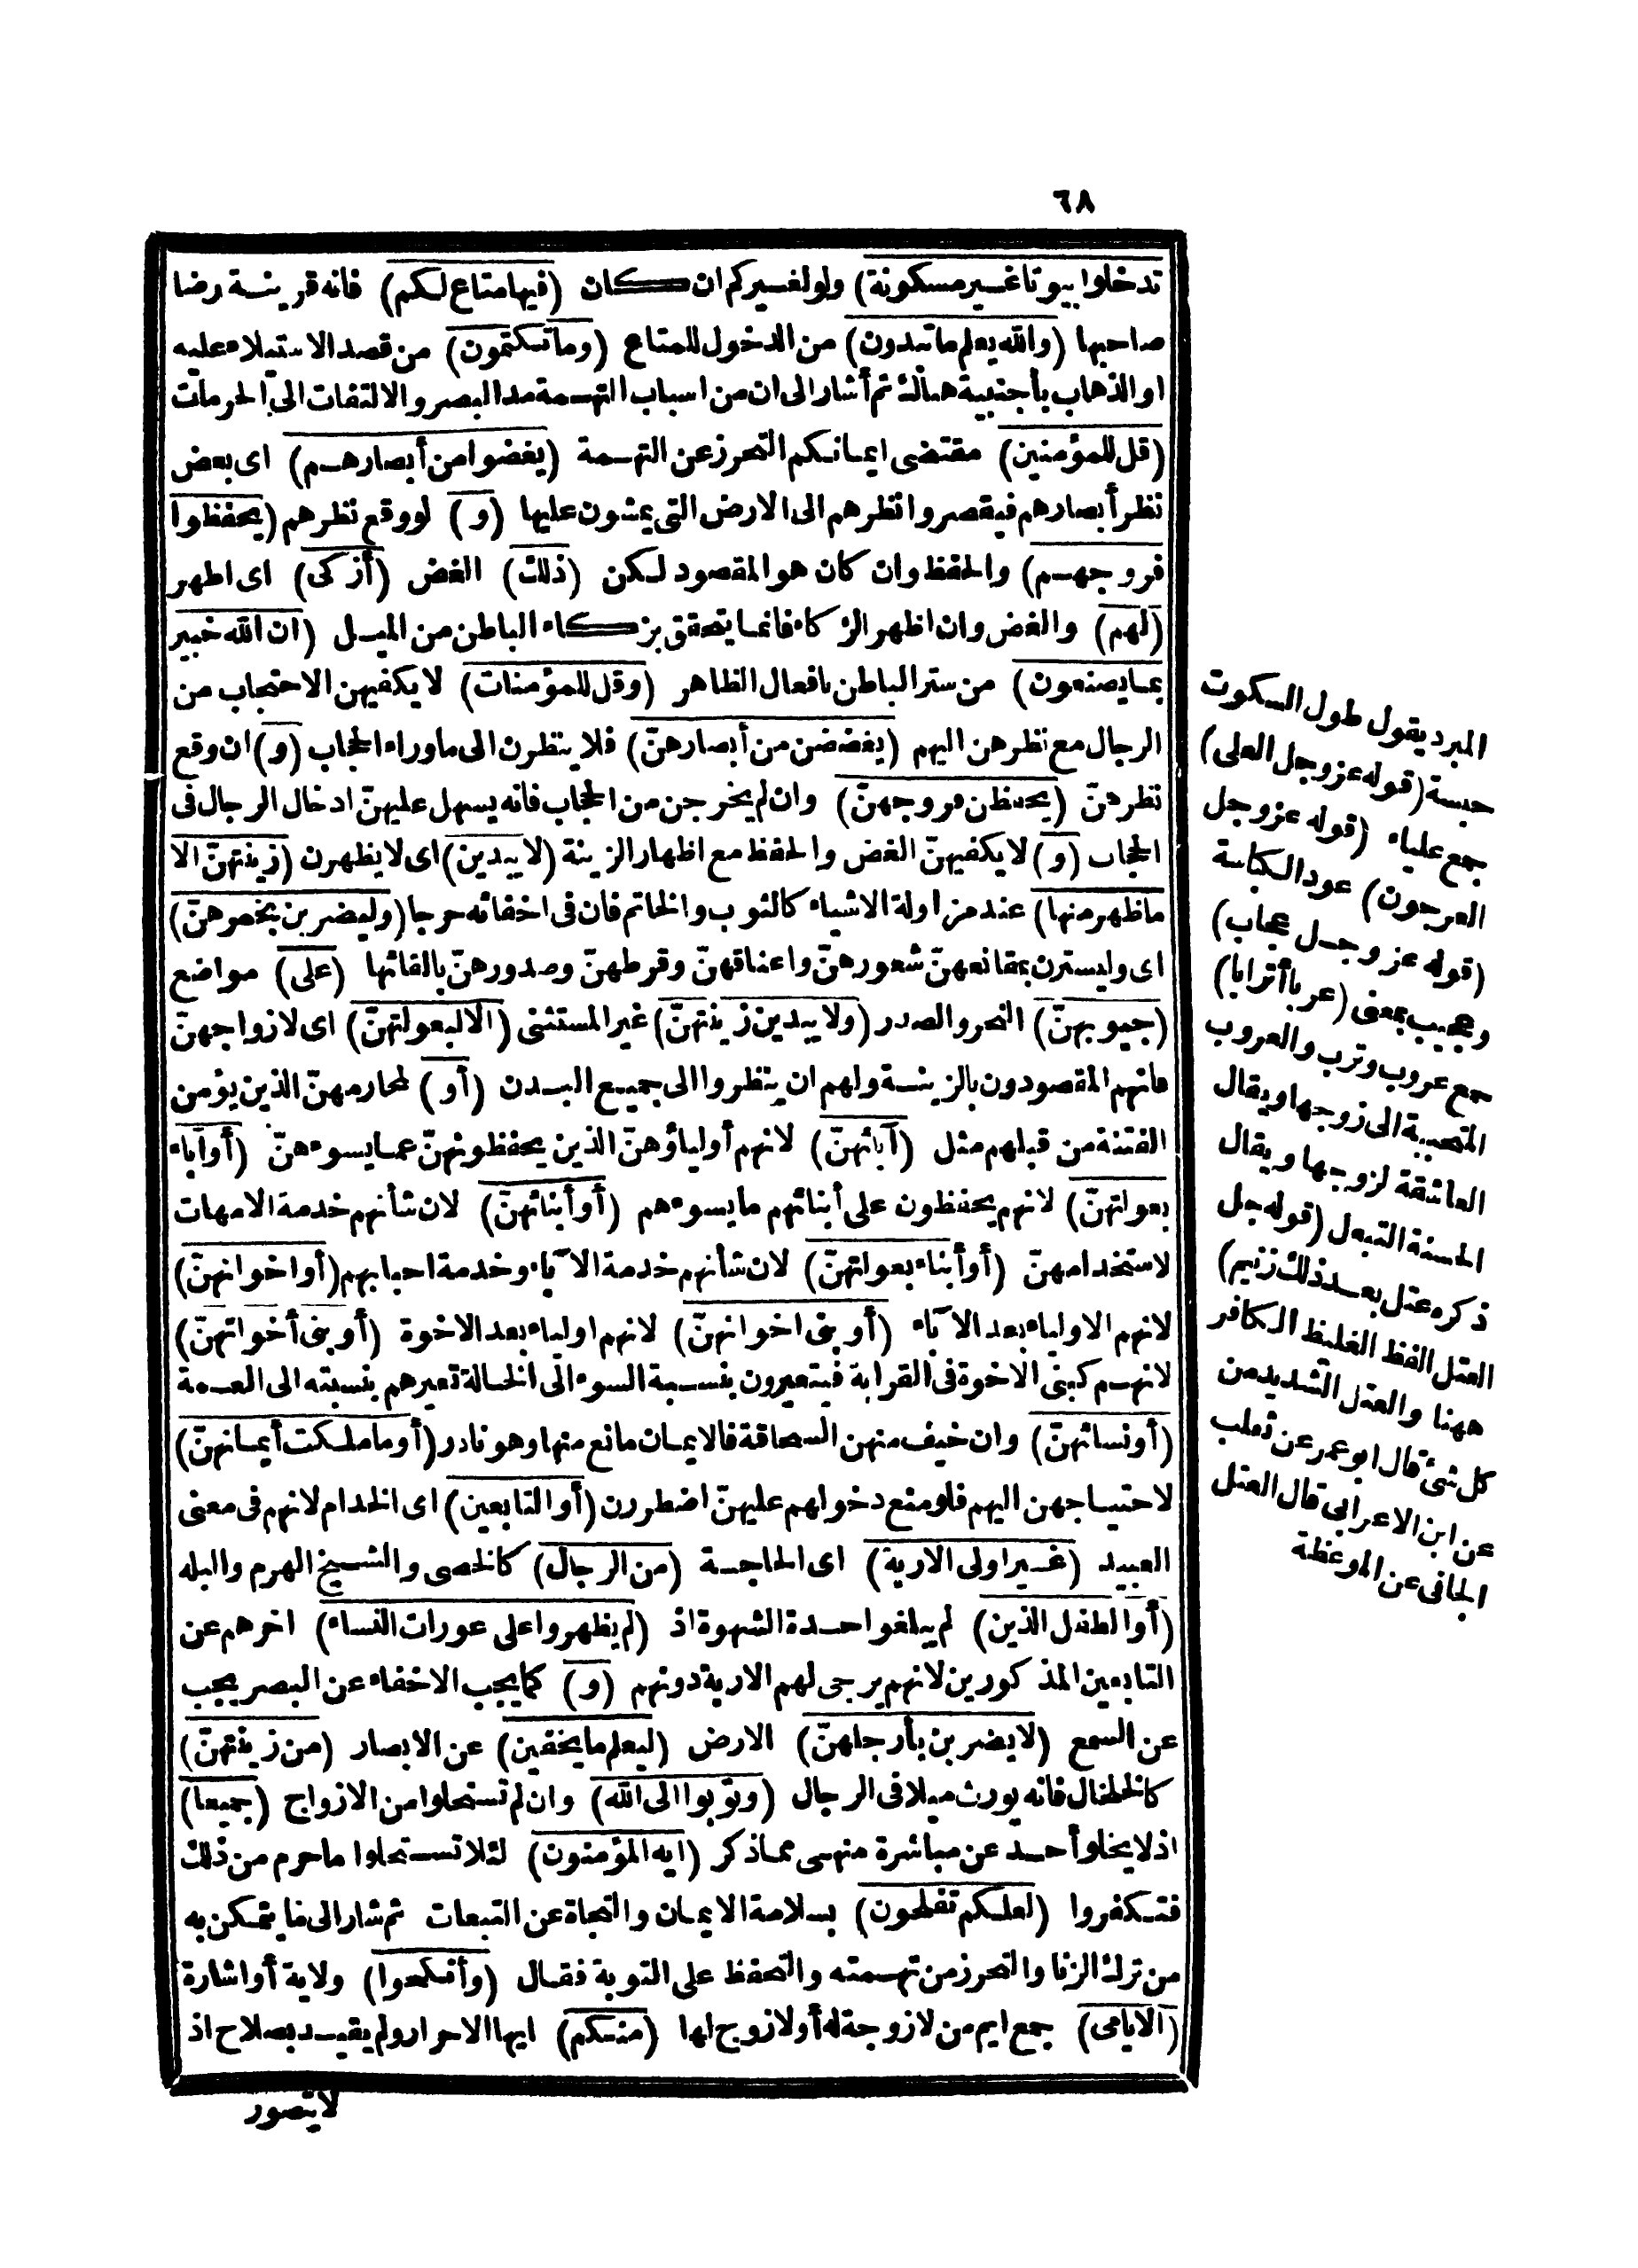 ٦٨
تدخلوا بيوتا غير مسكونة) ولو لغيركم ان كان (فيها متاع لكم) فانه قرينة رضا
صاحبها (والله يعلم ما تبدون) من الدخول للمتاع (وما تكتمون) من قصد الاستيلاء عليه
او الذهاب بأجنبية هنالك ثم أشار الى ان من اسباب التهمة مد البصر والالتفات الى الحرمات
(قل للمؤمنين) مقتضى ايمانكم التحرز عن التهمة (يغضوا من أبصارهم) اى بعض
نظر أبصارهم فيقصروا نظرهم الى الارض التى يمشون عليها (و) لو وقع نظرهم (يحفظوا
فروجهم) والحفظ وان كان هو المقصود لكن (ذلك) الغض (أزكى) اى اطهر
(لهم) والغض وان اظهر الزكاء فانما يتحقق بزكاء الباطن من الميل (ان الله خبير
بما يصنعون) من ستر الباطن بافعال الظاهر (وقل للمؤمنات) لا يكفيهن الاحتجاب من
الرجال مع نظرهن اليهم (يغضضن من أبصارهنّ) فلا ينظرن الى ما وراء الحجاب (و) ان وقع
نظرهنّ (يحفظن فروجهنّ) وان لم يخرجن من الحجاب فانه يسهل عليهنّ ادخال الرجال فى
الحجاب (و) لا يكفيهنّ الغض والحفظ مع اظهار الزينة (لا يبدين) اى لا يظهرن (زينتهنّ الا
ما ظهر منها) عند مزاولة الاشياء كالثوب والخاتم فان فى اخفائه حرجا (وليضربن بخمرهنّ)
اى وليسترن بمقانعهنّ شعورهنّ واعناقهنّ وقرطهنّ وصدورهنّ بالقائها (على) مواضع
(جيوبهنّ) النحر والصدر (ولا يبدين زينتهنّ) غير المستثنى (الا لبعولتهنّ) اى لازواجهنّ
فانهم المقصودون بالزينة ولهم ان ينظروا الى جميع البدن (أو) لمحارمهنّ الذين يؤمن
الفتنة من قبلهم مثل (آبائهنّ) لانهم أولياؤهنّ الذين يحفظونهنّ عما يسوءهنّ (أو آباء
بعولتهنّ) لانهم يحفظون على أبنائهم ما يسوءهم (أو أبنائهنّ) لان شأنهم خدمة الامهات
لاستخدامهنّ (أو أبناء بعولتهنّ) لان شأنهم خدمة الآباء وخدمة احبابهم (أو اخوانهنّ)
لانهم الاولياء بعد الآباء (أو بنى اخوانهنّ) لانهم اولياء بعد الاخوة (أو بنى أخواتهنّ)
لانهم كبنى الاخوة فى القرابة فيتعيرون بنسبة السوء الى الخالة تعيرهم بنسبته الى العمة
(أو نسائهنّ) وان خيف منهن السحاقة فالايمان مانع منها وهو نادر (أو ما ملكت أيمانهنّ)
لاحتياجهن اليهم فلو منع دخولهم عليهنّ اضطررن (أو التابعين) اى الخدام لانهم فى معنى
العبيد (غير اولى الاربة) اى الحاجة (من الرجال) كالخصى والشيخ الهرم والبله
(أو الطفل الذين) لم يبلغوا حدة الشهوة اذ (لم يظهروا على عورات النساء) اخرهم عن
التابعين المذكورين لانهم يرجى لهم الاربة دونهم (و) كما يجب الاخفاء عن البصر يجب
عن السمع (لا يضربن بأرجلهنّ) الارض (ليعلم ما يخفين) عن الابصار (من زينتهنّ)
كالخلخال فانه يورث ميلا فى الرجال (وتوبوا الى الله) وان لم تستحلوا من الازواج (جميعا)
اذ لا يخلو أحد عن مباشرة منهى مما ذكر (ايه المؤمنون) لئلا تستحلوا ما حرم من ذلك
فتكفروا (لعلكم تفلحون) بسلامة الايمان والنجاة عن التبعات ثم شار الى ما يتمكن به
من ترك الزنا والتحرز من تهمته والتحفظ على التوبة فقال (وأنكحوا) ولاية أو اشارة
(الايامى) جمع ايم من لا زوجة له أو لا زوج لها (منكم) ايها الاحرار ولم يقيد بصلاح اذ
لا يتصور
المبرد يقول طول السكوت
حبسة (قوله عز وجل العلى)
جمع علياء (قوله عز وجل
العرجون) عود الكباسة
(قوله عز وجل عجاب)
وعجيب بمعنى (عربا أترابا)
جمع عروب وترب والعروب
المتحببة الى زوجها ويقال
العاشقة لزوجها ويقال
الحسنة التبعل (قوله جل
ذكره عتل بعد ذلك زنيم)
العتل الفظ الغليظ الكافر
ههنا والعتل الشديد من
كل شئ قال ابو عمر عن ثعلب
عن ابن الاعرابى قال العتل
الجافى عن الموعظة